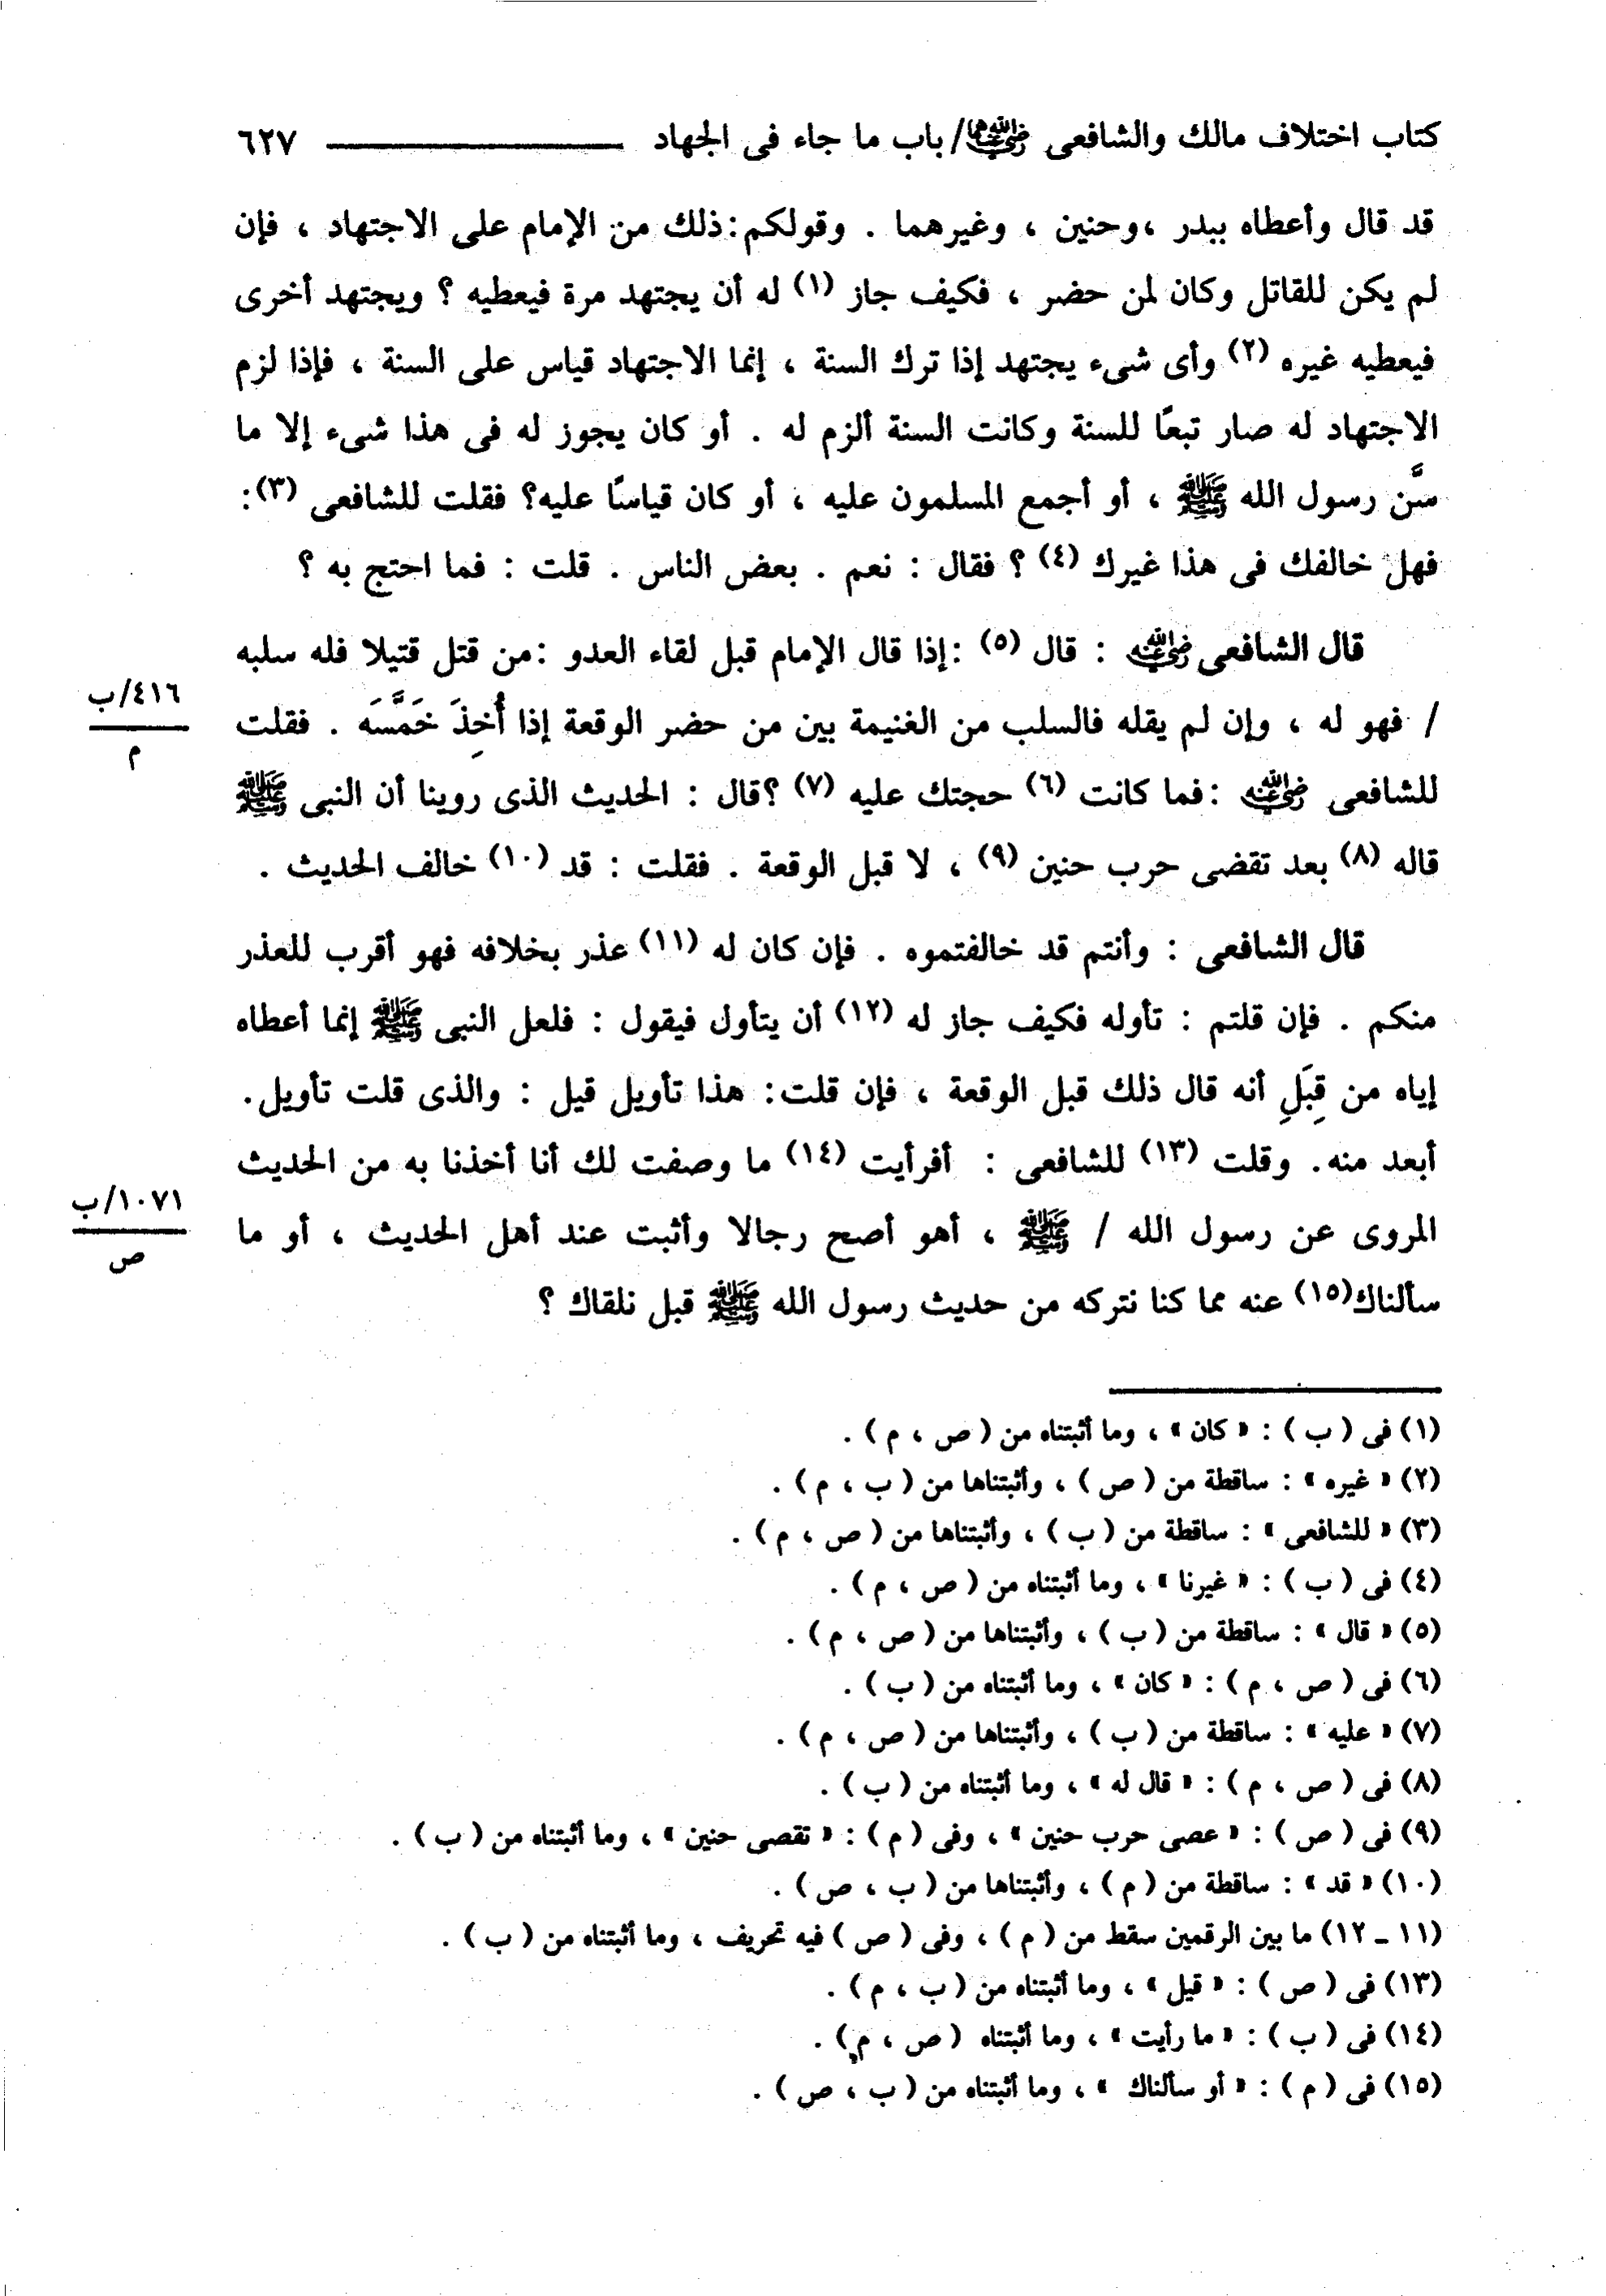 كتاب اختلاف مالك والشافعى رضي الله عنهما / باب ما جاء فى الجهاد ٦٢٧
قد قال وأعطاه ببدر ،وحنين ، وغيرهما . وقولكم:ذلك من الإمام على الاجتهاد ، فإن
لم يكن للقاتل وكان لمن حضر ، فكيف جاز (١) له أن يجتهد مرة فيعطيه ؟ ويجتهد أخرى
فيعطيه غيره (٢) وأى شىء يجتهد إذا ترك السنة ، إنما الاجتهاد قياس على السنة ، فإذا لزم
الاجتهاد له صار تبعًا للسنة وكانت السنة ألزم له . أو كان يجوز له فى هذا شىء إلا ما
سَّن رسول الله ﷺ ، أو أجمع المسلمون عليه ، أو كان قياسًا عليه؟ فقلت للشافعى (٣):
فهل خالفك فى هذا غيرك (٤) ؟ فقال : نعم . بعض الناس . قلت : فما احتج به ؟
قال الشافعى رضي الله عنه : قال (٥) :إذا قال الإمام قبل لقاء العدو :من قتل قتيلا فله سلبه
٤١٦/ب
م
/ فهو له ، وإن لم يقله فالسلب من الغنيمة بين من حضر الوقعة إذا أُخِذَ خَمَّسَه . فقلت
للشافعى رضي الله عنه :فما كانت (٦) حجتك عليه (٧) ؟قال : الحديث الذى روينا أن النبى ﷺ
قاله (٨) بعد تقضى حرب حنين (٩) ، لا قبل الوقعة . فقلت : قد (١٠) خالف الحديث .
قال الشافعى : وأنتم قد خالفتموه . فإن كان له (١١) عذر بخلافه فهو أقرب للعذر
منكم . فإن قلتم : تأوله فكيف جاز له (١٢) أن يتأول فيقول : فلعل النبى ﷺ إنما أعطاه
إياه من قِبَلِ أنه قال ذلك قبل الوقعة ، فإن قلت: هذا تأويل قيل : والذى قلت تأويل.
أبعد منه. وقلت (١٣) للشافعى : أفرأيت (١٤) ما وصفت لك أنا أخذنا به من الحديث
المروى عن رسول الله / ﷺ ، أهو أصح رجالا وأثبت عند أهل الحديث ، أو ما
١٠٧١/ب
ص
سألناك(١٥) عنه مما كنا نتركه من حديث رسول الله ﷺ قبل نلقاك ؟
(١) فى ( ب ) : « كان » ، وما أثبتناه من ( ص ، م ) .
(٢) « غيره » : ساقطة من ( ص ) ، وأثبتناها من ( ب ، م ) .
(٣) « للشافعى » : ساقطة من ( ب ) ، وأثبتناها من ( ص ، م ) .
(٤) فى ( ب ) : « غيرنا » ، وما أثبتناه من ( ص ، م ) .
(٥) « قال » : ساقطة من ( ب ) ، وأثبتناها من ( ص ، م ) .
(٦) فى ( ص ، م ) : « كان » ، وما أثبتناه من ( ب ) .
(٧) « عليه » : ساقطة من ( ب ) ، وأثبتناها من ( ص ، م ) .
(٨) فى ( ص ، م ) : « قال له » ، وما أثبتناه من ( ب ) .
(٩) فى ( ص ) : « عصى حرب حنين » ، وفى ( م ) : « تقصى حنين » ، وما أثبتناه من ( ب ) .
(١٠) « قد » : ساقطة من ( م ) ، وأثبتناها من ( ب ، ص ) .
(١١ ـ ١٢) ما بين الرقمين سقط من ( م ) ، وفى ( ص ) فيه تحريف ، وما أثبتناه من ( ب ) .
(١٣) فى ( ص ) : « قيل » ، وما أثبتناه من ( ب ، م ) .
(١٤) فى ( ب ) : « ما رأيت » ، وما أثبتناه ( ص ، م ) .
(١٥) فى ( م ) : « أو سألناك » ، وما أثبتناه من ( ب ، ص ) .